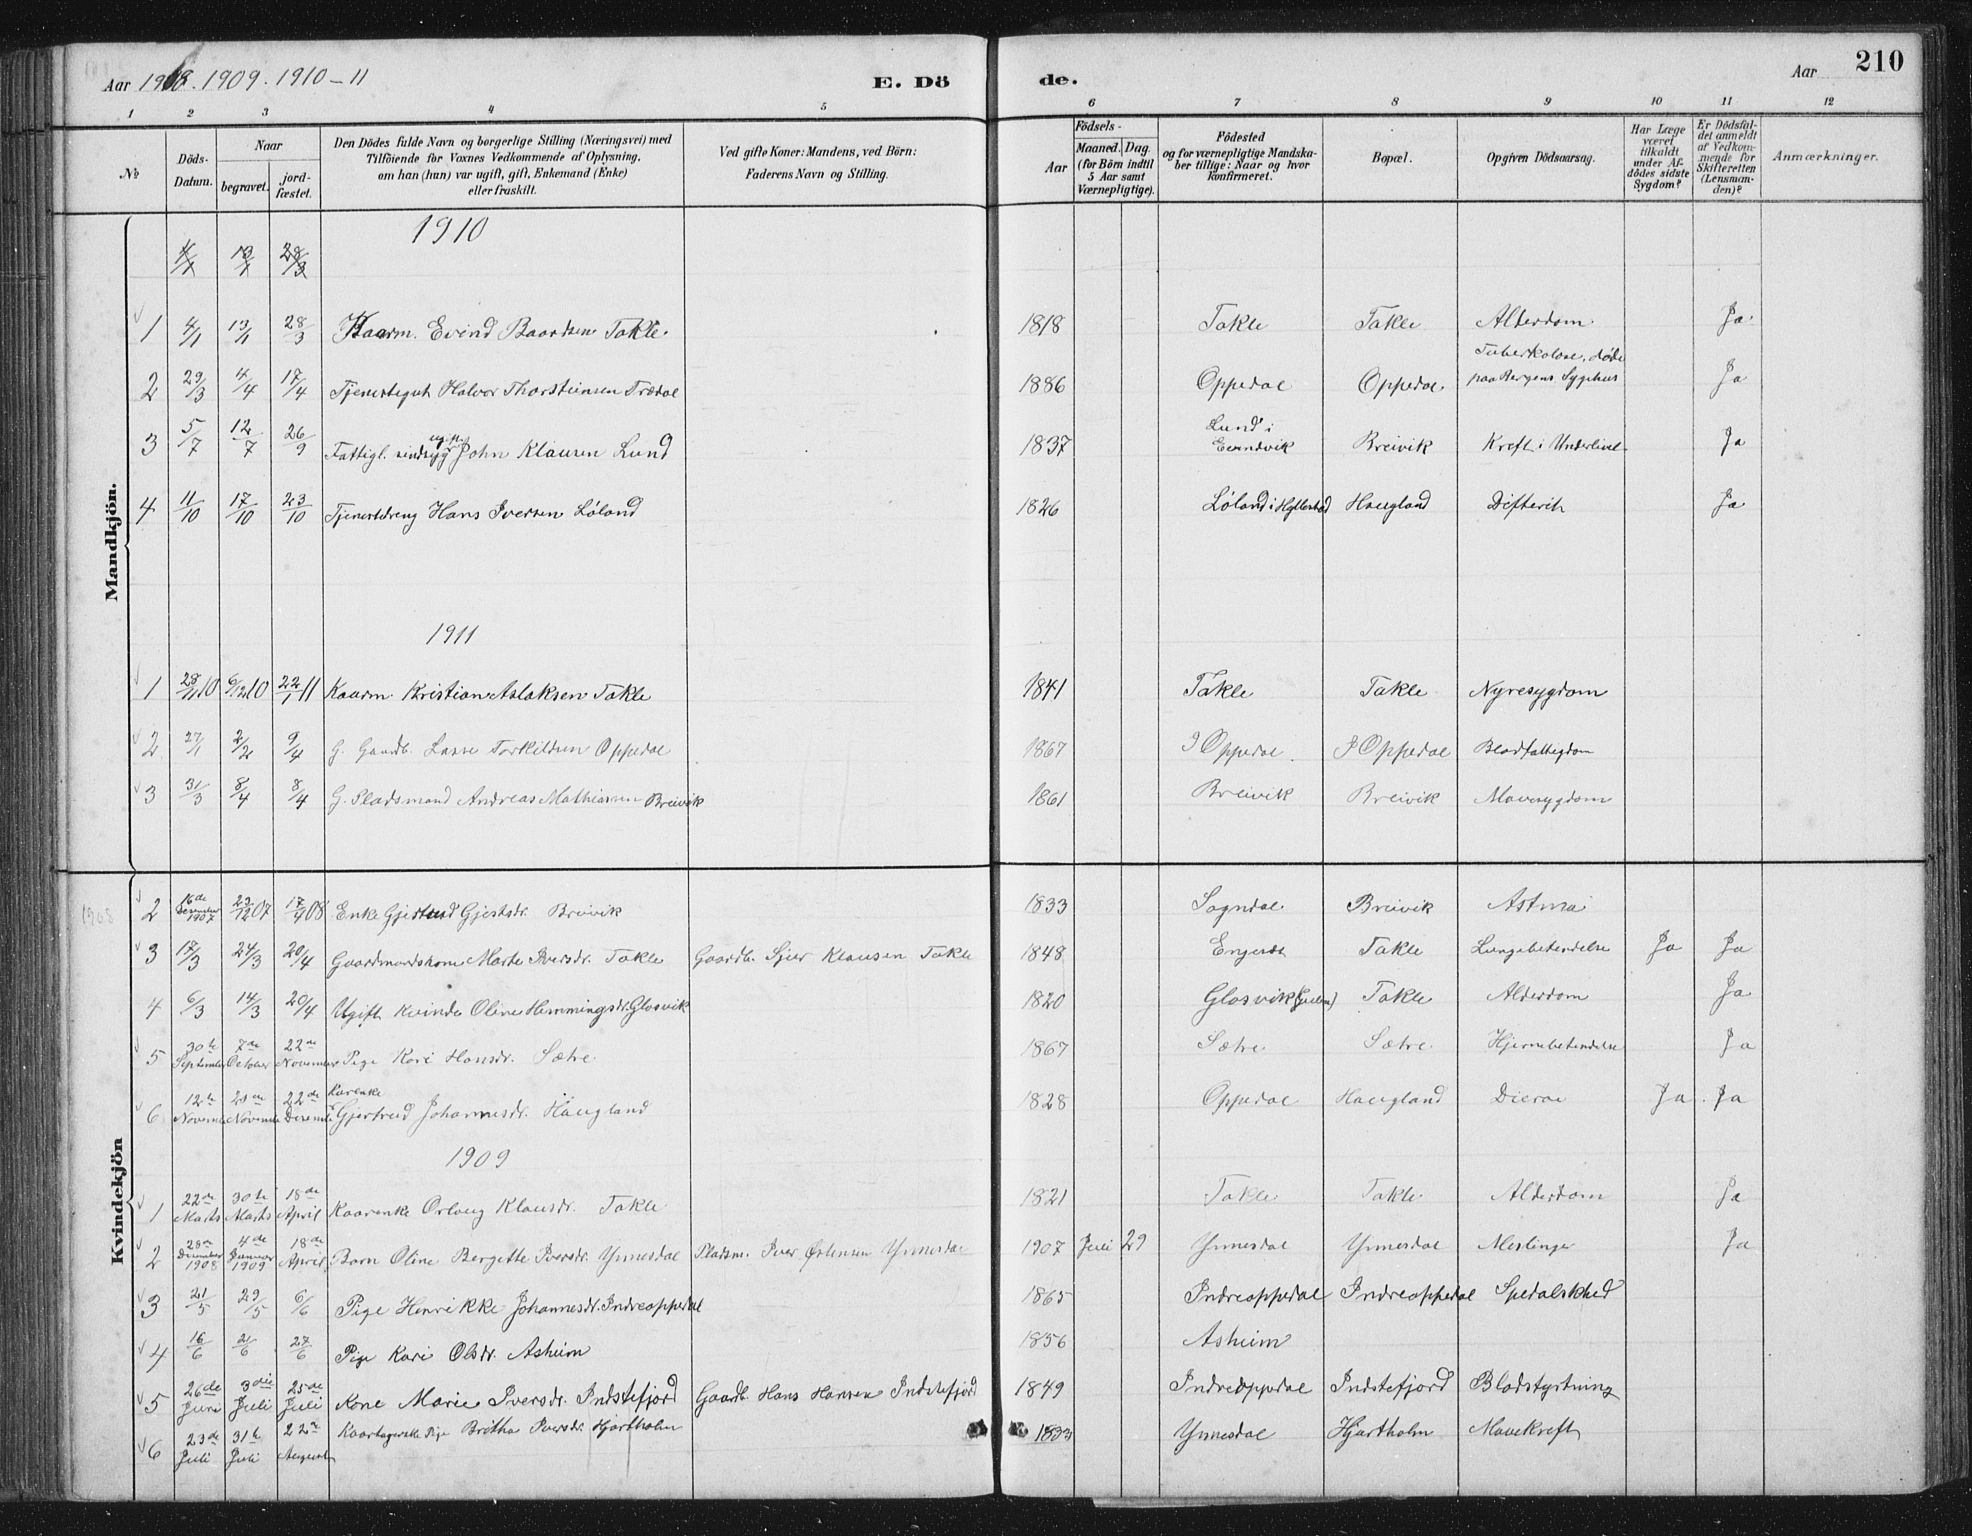 Aar 1908. 1909. 1910-11 E. Dö de. Aar 210
1 2 3 4 5 6 7 8 9 10 11 12
No Döds-Datum. Naar begravet. jord-fæstet. Den Dödes fulde Navn og borgerlige Stilling (Næringsvei) med Tilföiende for Voxnes Vedkommende af Oplysning, om han (hun) var ugift, gift, Enkemand (Enke) eller fraskilt. Ved gifte Koner: Mandens, ved Börn: Faderens Navn og Stilling. Födsels- Aar Maaned. Dag. (for Börn indtil 5 Aar samt Værnepligtige). Födested og for værnepligtige Mandskaber tillige: Naar og hvor konfirmeret. Bopæl. Opgiven Dödsaarsag. Har Læge været tilkaldt under Afdödes sidste Sygdom? Er Dödsfaldet anmeldt af Vedkommende for Skifteretten (Lensmanden)? Anmærkninger.
Mandkjön.
1910
4/1 13/1 28/3
1 4/1 13/1 28/3 Kaarm. Evind Baardsen Takle. 1818 Takle Takle Alderdom. Ja.
2 29/3 4/4 17/4 Tjenestegut Halvor Thorsteinsen Trædal 1886 Oppedal Oppedal. Tuberkolose, døde paa Bergens Sygehus Ja
3 5/7 12/7 26/9 Fattigl. sindsyg ugift John Klausen Lund 1837 Lund i Evindvik Breivik Kreft i Underlivet Ja
4 11/10 17/10 23/10 Tjenestdreng Hans Iversen Løland 1826 Løland i Hyllestad Haugland Difterit Ja
1911
1 28/11 10 6/12 10 22/1 11 Kaarm. Kristian Aslaksen Takle 1841 Takle Takle Nyresygdom
2 27/1 2/2 9/4 G. Gaardb. Lasse Torkildsen Oppedal 1867 I Oppedal I Oppedal Blodfattigdom
3 31/3 8/4 8/4 G. Pladsmand Andreas Mathiasen Breivik 1861 Breivik Breivik Mavesygdom
Kvindekjön
1908
2 16de December 1907 23/12 07 17/4 08 Enke Gjertrud Gjestsdr. Breivik 1833 Sogndal Breivik Astma
3 17/3 24/3 20/4 Gaardmandskone Marte Iversdr. Takle Gaardb. Sjur Klausen Takle 1848 Engesæt Takle Lungebetendelse Ja Ja
4 6/3 14/3 20/4 Ugift Kvinde Oline Hemmingsdr. Glosvik 1820 Glosvik (Gulen) Takle Alderdom Ja
5 30te September 7de October 22de November Pige Kari Hansdr. Sætre. 1867 Sætre. Sætre. Hjernebetendelse Ja
6 12te November November 22de December Kaarenke Gjertrud Johannesdr. Haugland 1828 Oppedal Haugland Ja Ja
1909
1 22de Marts 30te Marts 18de April Kaarenke Orlaug Klausdr. Takle 1821 Takle Takle Alderdom Ja
2 28de December 1908 4de Januar 1909 18de April Barn Oline Bergette Iversdr. Ynnesdal Pladsm. Iver Østensen Ynnesdal 1907 Juli 29 Ynnesdal Ynnesdal Meslinger Ja
3 21/5 29/5 6/6 Pige Henrikke Johannesdr. Indreoppedal 1865 Indreoppedal Indreoppedal Spedalskhed
4 16/6 21/6 27/6 Pige Kari Olsdr. Asheim 1856 Asheim
5 26de Juni 3die Juli 25de Juli Kone Marie Iversdr. Indstefjord Gaardb. Hans Hansen Indstefjord 1849 Indreoppedal Indstefjord Blodstyrtning
6 23de Juli 31te Juli 22de August Pige Britha Iversdr. Hjartholm 1833 Ynnesdal Hjartholm Mavekreft